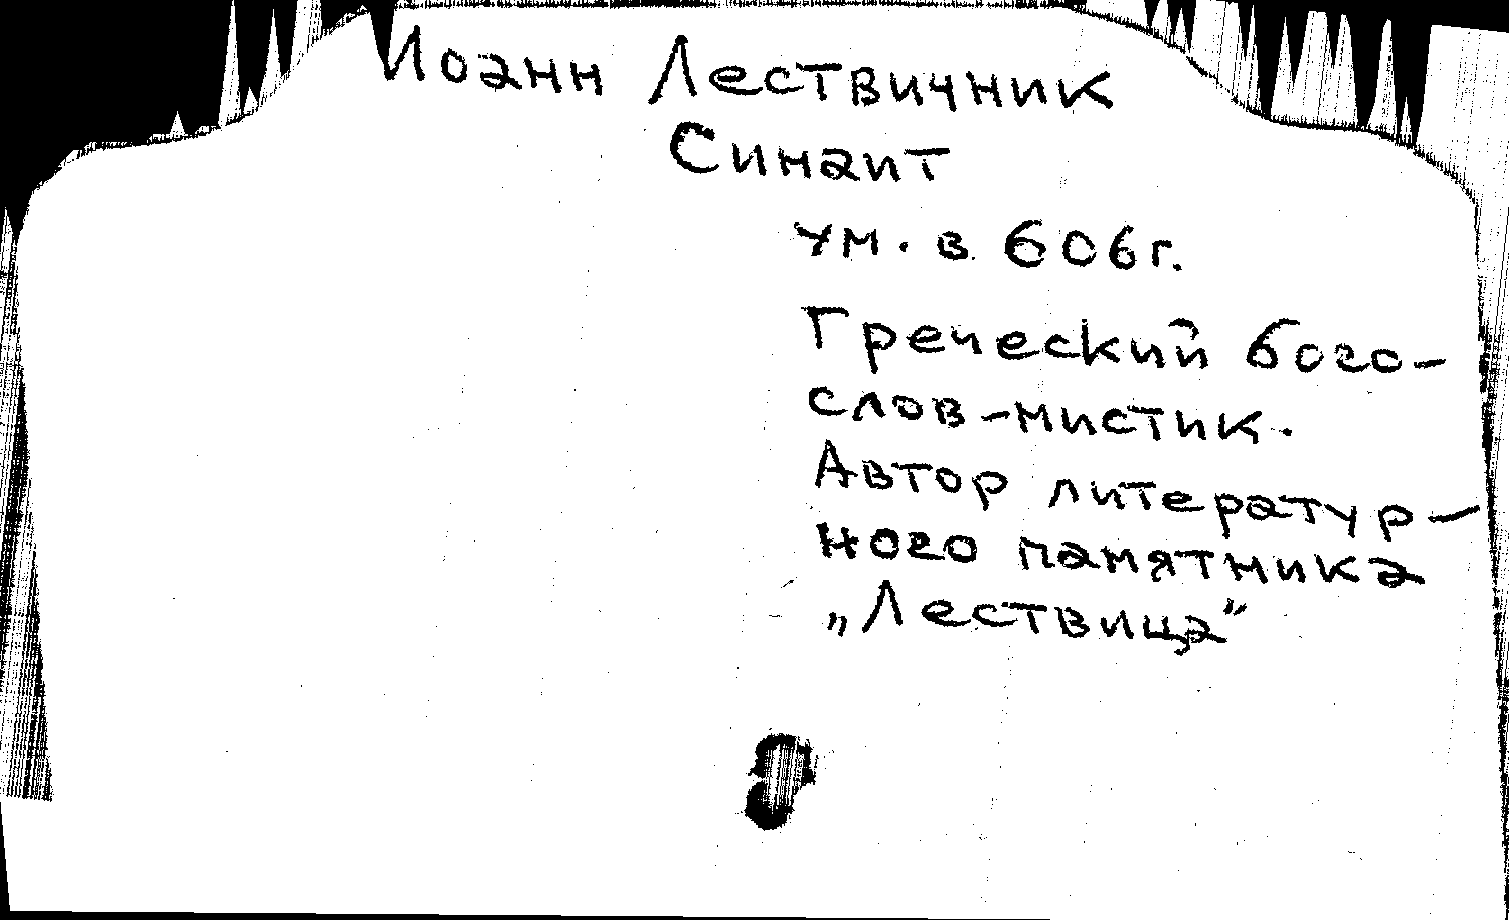 Иоанн Лествичник
Синаит
ум. в 606г.
Греческий бого-
слов-мистик.
Автор литератур-
ного памятника
„Лествица"